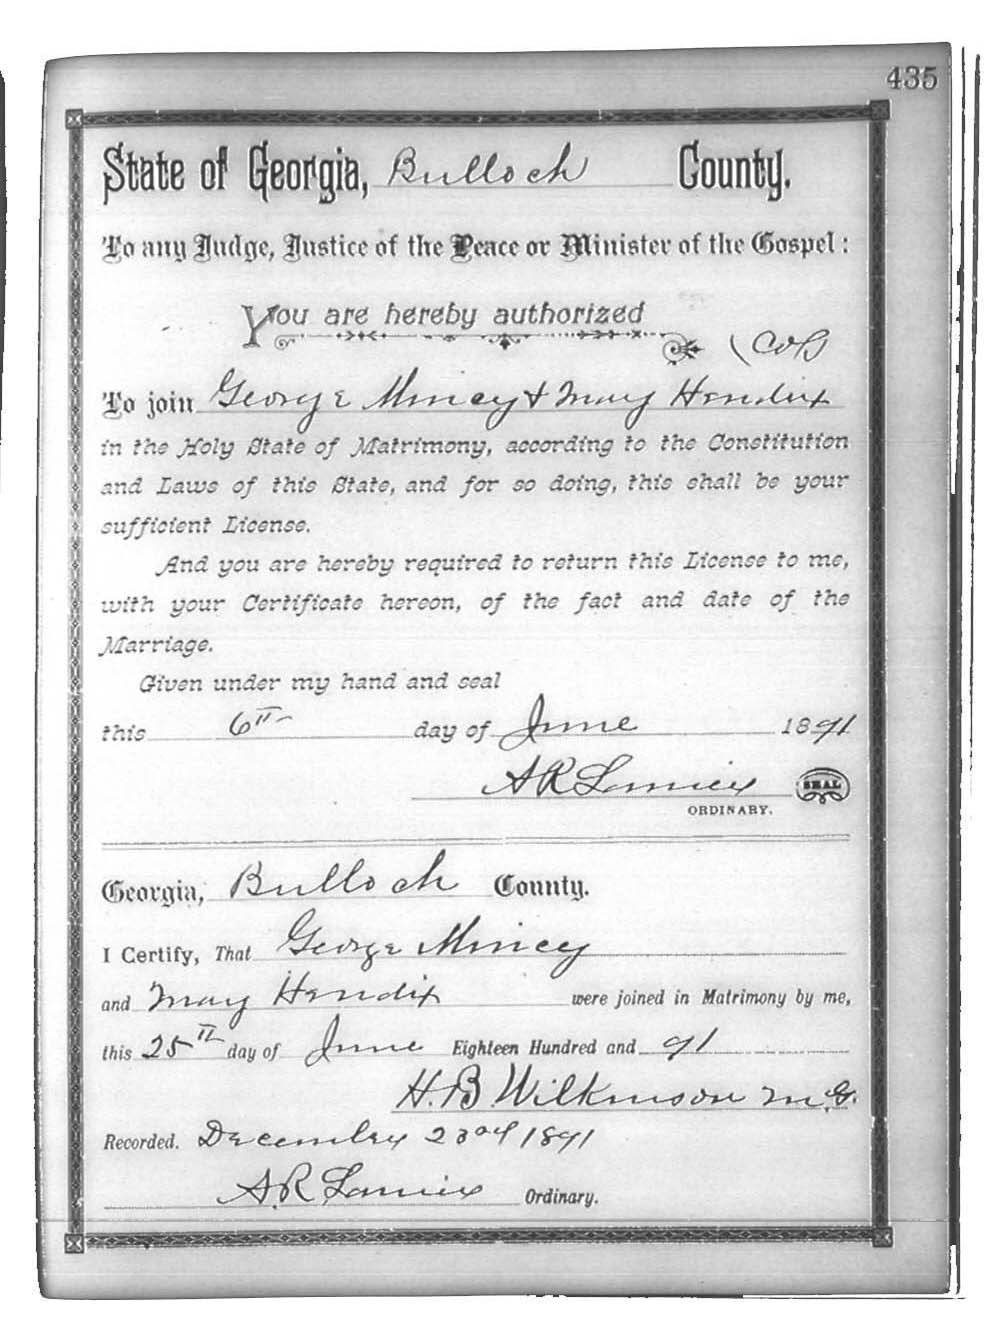 435
State of Georgia, Bulloch County.
To any Judge, Justice of the Peace or Minister of the Gospel:
You are hereby authorized
(Col)
To join George Mincey & May Hendix
in the Holy State of Matrimony, according to the Constitution
and Laws of this State, and for so doing, this shall be your
sufficient License.
And you are hereby required to return this License to me,
with your Certificate hereon, of the fact and date of the
Marriage.
Given under my hand and seal
this 6th day of June 1891
A R Lanier SEAL
ORDINARY.
Georgia, Bulloch County.
I Certify, That George Mincey
and May Hendix were joined in Matrimony by me,
this 25th day of June Eighteen Hundred and 91
H. B Wilkinson M.G.
Recorded. December 23rd 1891
A. R Lanier Ordinary.